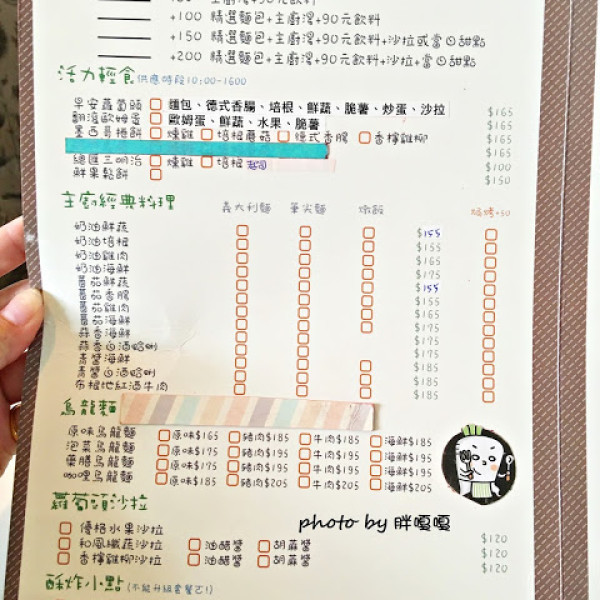 +100 精選麵包+主廚湯+90元飲料
+150 精選麵包+主廚湯+90元飲料+沙拉或當日甜點
+200 精選麵包+主廚湯+90元飲料+沙拉+當日甜點
活力輕食 供應時段10:00-1600
早安蘿蔔頭 麵包、德式香腸、培根、鮮蔬、脆薯、炒蛋、沙拉 $165
翻滾歐姆蛋 歐姆蛋、鮮蔬、水果、脆薯 $165
墨西哥捲餅 燻雞 培根蘑菇 德式香腸 香檸雞柳 $165
$165
總匯三明治 燻雞 培根 $100
鮮果鬆餅 $150
主廚經典料理 義大利麵 筆尖麵 燉飯 焗烤+50
奶油鮮蔬 $155
奶油培根 $155
奶油雞肉 $165
奶油海鮮 $175
蕃茄鮮蔬 $155
蕃茄香腸 $155
蕃茄雞肉 $165
蕃茄海鮮 $175
蒜香海鮮 $175
蒜香白酒蛤蜊 $175
青醬海鮮 $185
青醬白酒蛤蜊 $185
布根地紅酒牛肉 $185
烏龍麵
原味烏龍麵 原味$165 豬肉$185 牛肉$185 海鮮$185
泡菜烏龍麵 原味$175 豬肉$195 牛肉$195 海鮮$195
藥膳烏龍麵 原味$175 豬肉$195 牛肉$195 海鮮$195
咖哩烏龍麵 原味$185 豬肉$205 牛肉$205 海鮮$205
蘿蔔頭沙拉
優格水果沙拉 $120
和風纖蔬沙拉 油醋醬 胡麻醬 $120
香檸雞柳沙拉 油醋醬 胡麻醬 $120
photo by 胖嘎嘎
酥炸小點 (不能升級套餐乙!)